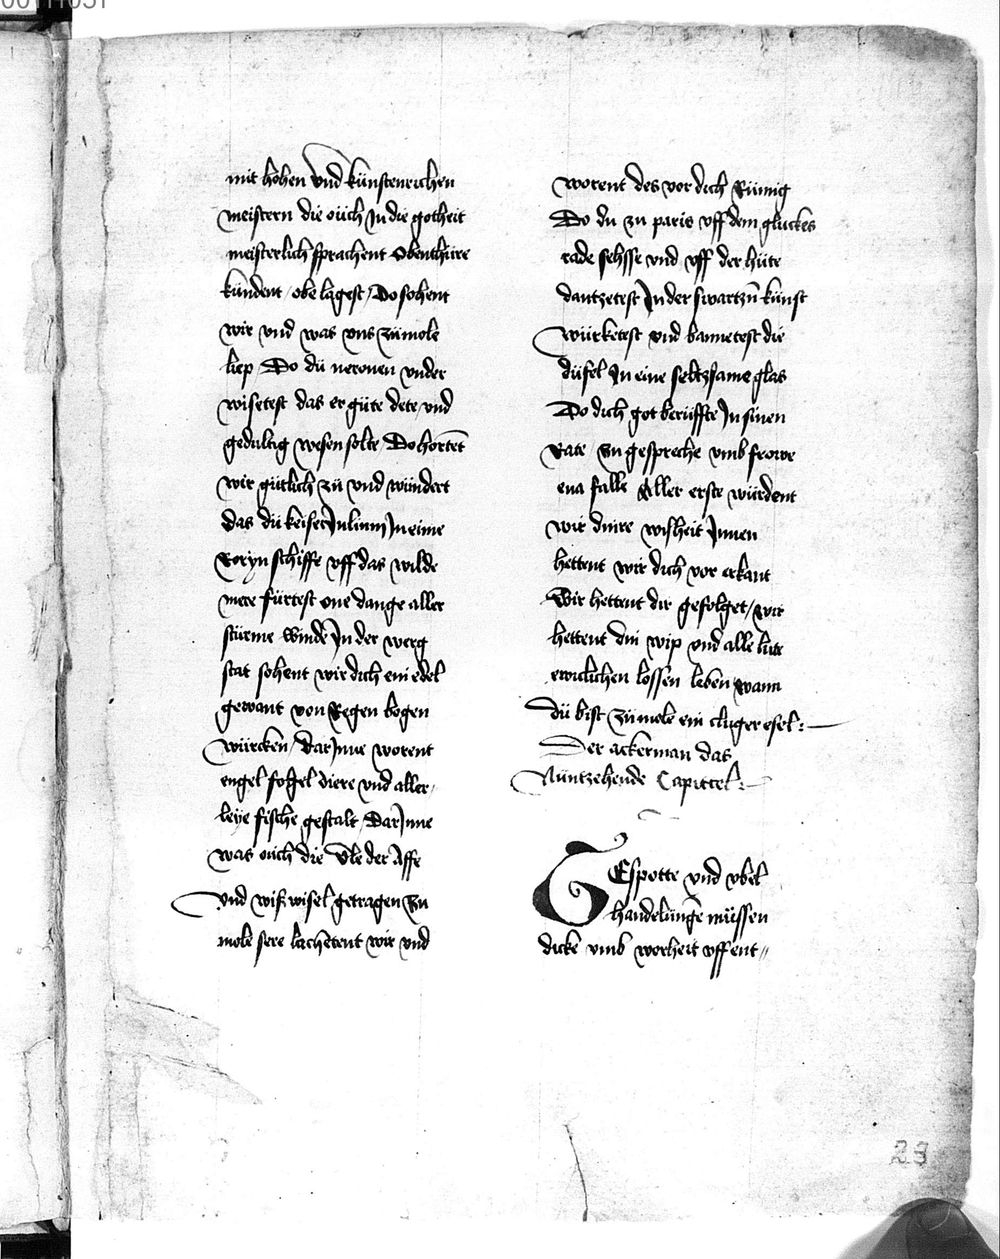 mit hohen vnd künstenrichen
meistern die oüch In die gotheit
meisterlich sprachent obenthüre
kündent / obe lagest / Do sohent
wir vnd was vns zümole
liep Do dü neronen vnder
wisetest das er güte dete / vnd
gedultig wesen solte / Do hortēt
wir gütlich zü vnd wündert
das dü keiser Julium In eime
Roryn schiffe vff das wilde
mere fürtest one dange aller
stürme winde In der werg
stat sohent wir dich ein edel
gewant von Regen bogen
würcken / Dar Inne worent
engel fogel diere vnd aller
leye fische gestalt / Dar Inne
was oüch die vle der Affe
vnd wiß wisel getragen Zü
mole sere lachetent wir vnd
worent des vor dich Rümig
Do dü zü paris vff dem glückes
rade sehsse vnd vff der hüte
dantzetest In der swartzñ künst
würketest vnd bannetest die
düfel In eine seltzsame glas
Do dich got berüffte In sinen
Rate / zü gespreche vmb frowe
eua falle Aller erste würdent
wir dinre wisheit Innen
hettent wir dich vor erkant
Wir hettent dir gefolget / wir
hettent din wip vnd alle lüte
ewiclichen lossen leben wann
dü bist zümole ein clüger esel :
Der ackerman das
Nüntzehende Capittel :
GEspotte vnd vbel
handelünge müssen
dicke vmb worheit vffent //
23